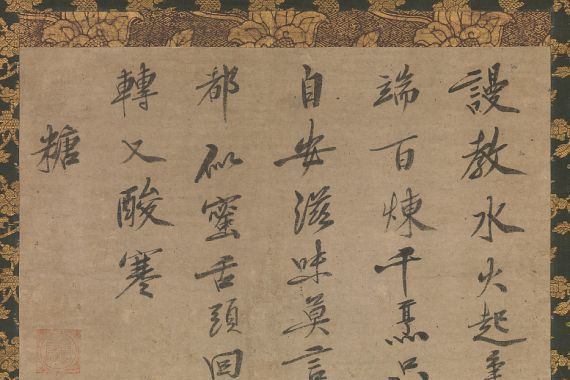 謾教水火起
端百煉千烹只
自安滋味莫言
都似蜜舌頭回
轉又酸寒
糖